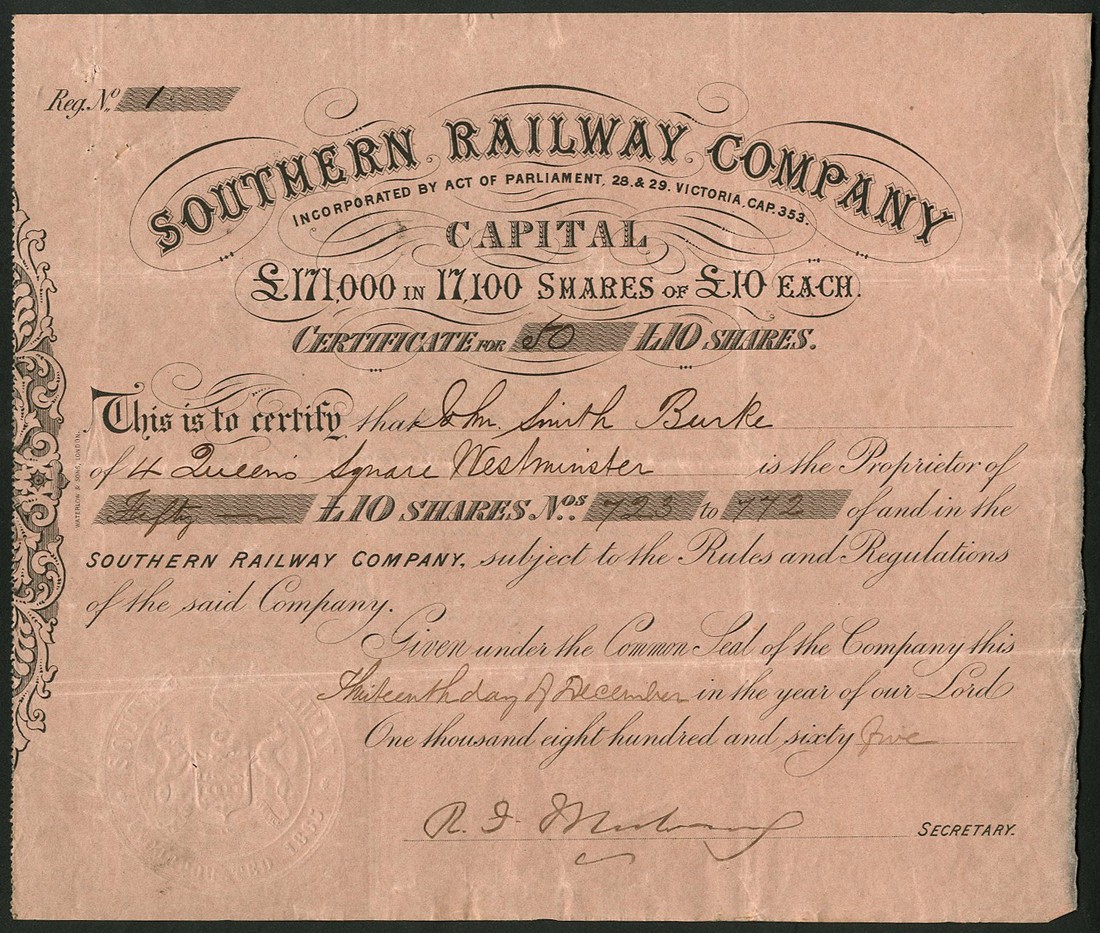 Reg. No. 1
SOUTHERN RAILWAY COMPANY
INCORPORATED BY ACT OF PARLIAMENT, 28 & 29. VICTORIA, CAP. 353.
CAPITAL
£171,000 IN 17,100 SHARES OF £10 EACH.
CERTIFICATE FOR 50 £10 SHARES.
This is to certify that John Smith Burke
of 4 Queen's Square Westminster is the Proprietor of
Fifty £10 SHARES. Nos. 723 to 772 of and in the
SOUTHERN RAILWAY COMPANY, subject to the Rules and Regulations
of the said Company.
Given under the Common Seal of the Company this
Thirteenth day of December in the year of our Lord
One thousand eight hundred and sixty five
R. I.
SECRETARY.
WATERLOW & SONS, LONDON.
INCORPORATED 1865